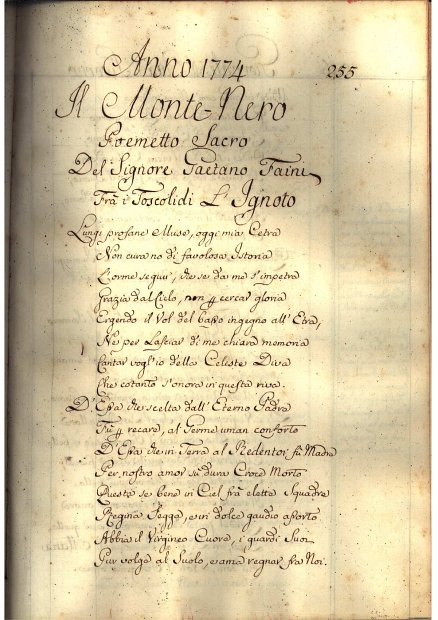 Anno 1774
255
Il Monte-Nero
Poemetto Sacro
Del Signore Gaetano Faini
Frà i Toscolidi L'Ignoto
Lungi profane Muse, oggi mia Cetra
Non cura nò di favolosa Istoria
L'orme seguir, che se da me s'impetra
Grazia dal Cielo, non cercar gloria
Ergendo il Vol del basso ingegno all'Etra,
Ne per Lasciar di me chiara memoria
Cantar vogl'io della Celeste Diva
Che cotanto s'onora in questa riva.
D'Essa che scelta dall'Eterno Padre
Fù recare, al Germe uman conforto
D'Essa che in Terra al Redentor fù Madre
Per nostro amor sù dura Croce Morto
Questa se bene in Ciel frà elette Squadre
Regina segga, e in dolce gaudio assorto
Abbia il Virgineo Cuore, i guardi Suoi
Pur volge al Suolo, e ama regnar fra Noi.